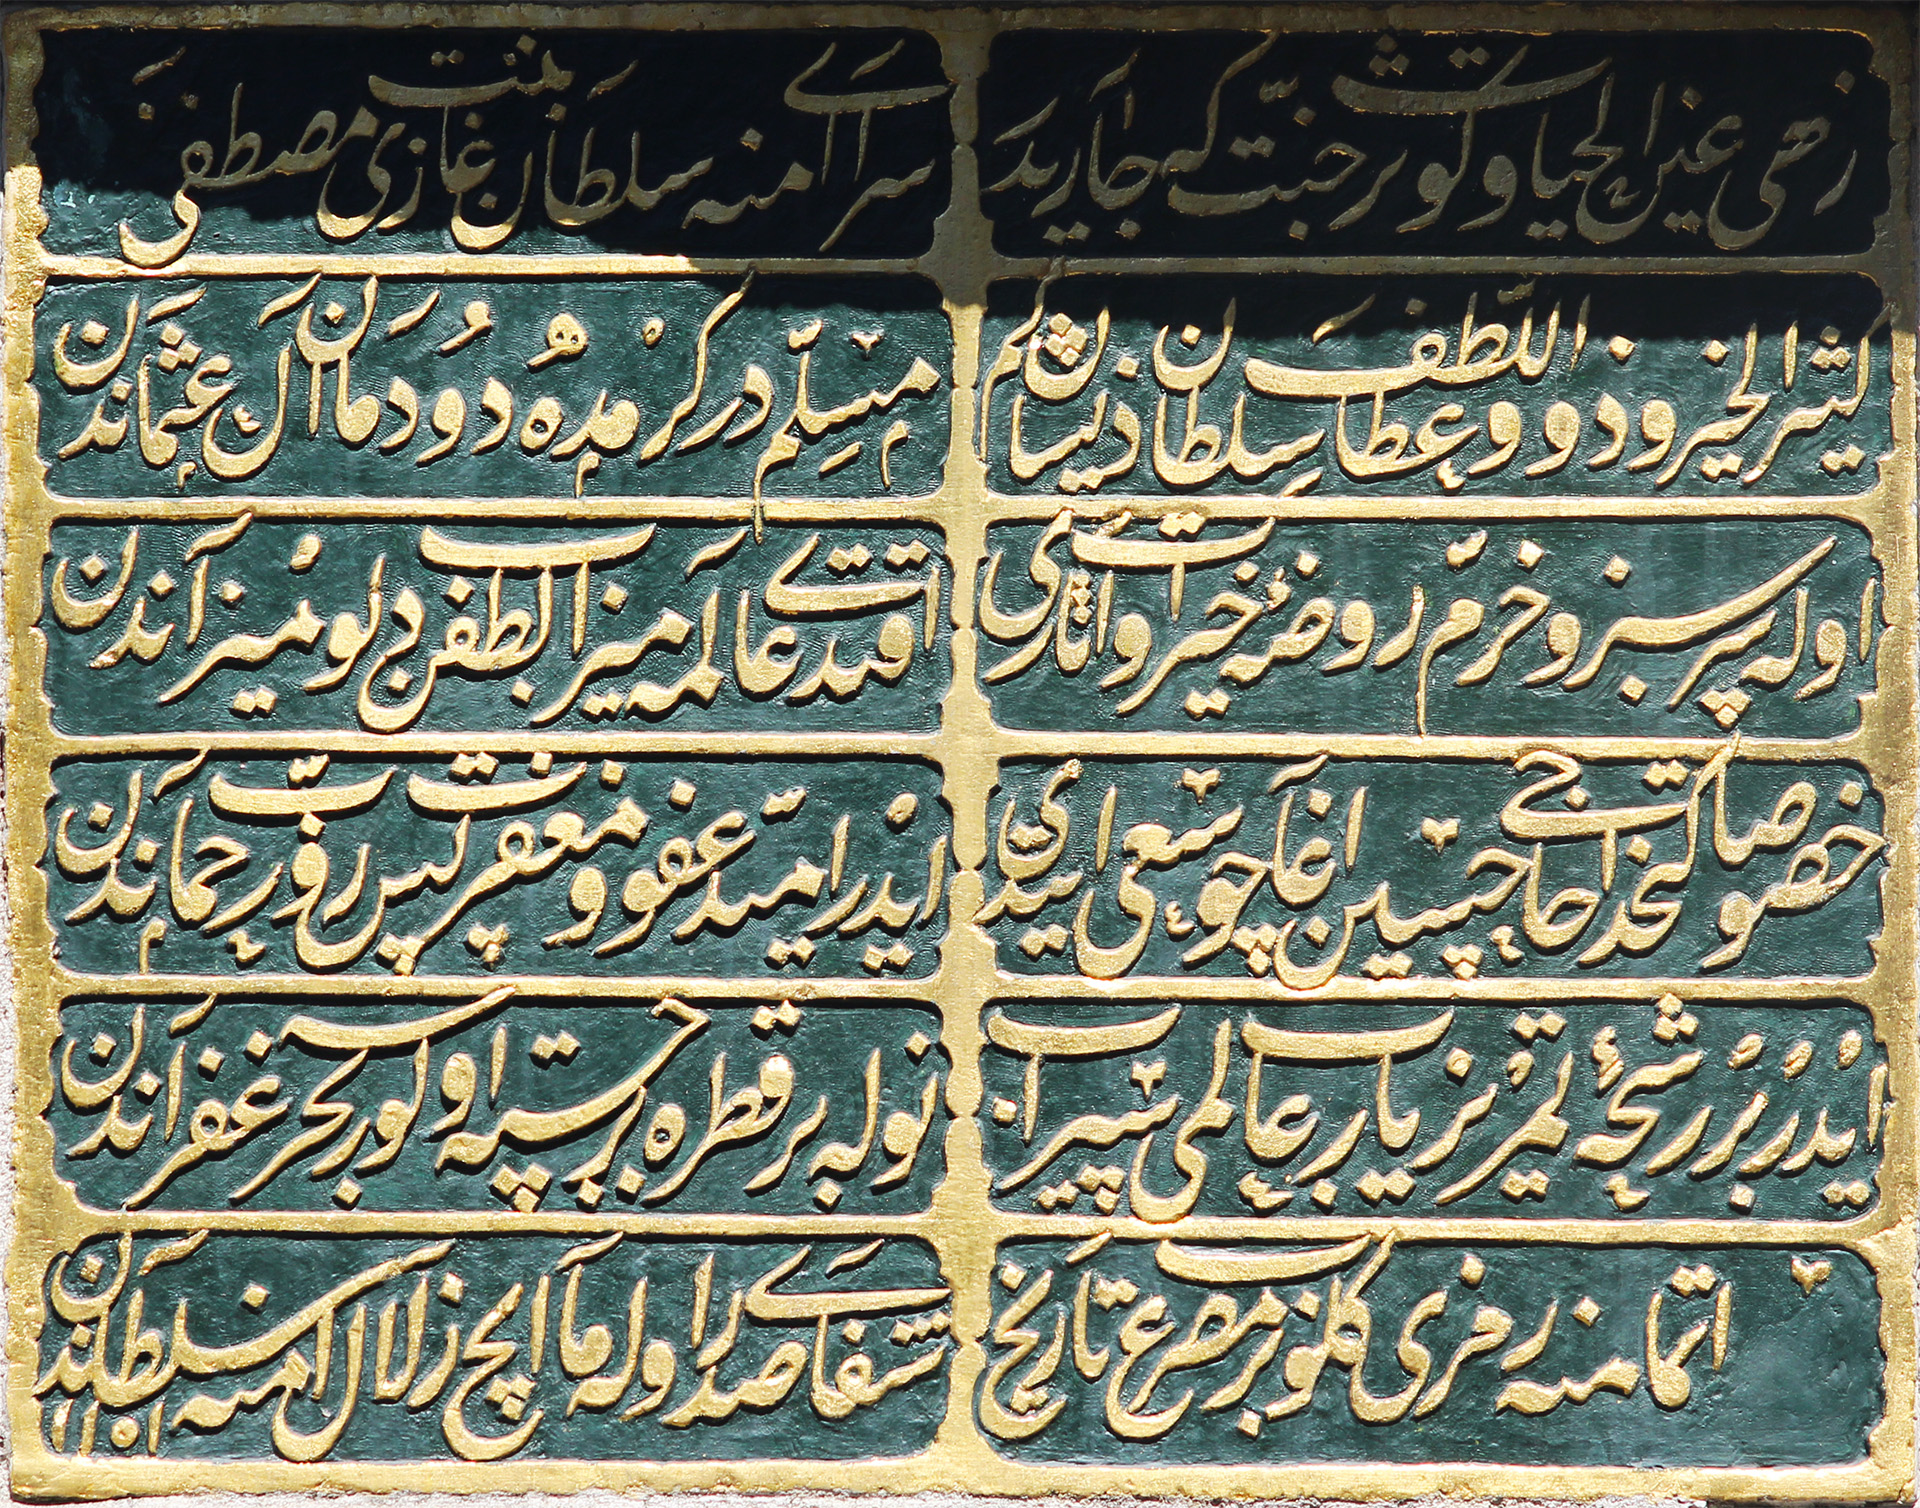 زهی عین الحیات و کوثر جنت که جاریدر
سرای آمنه سلطان بنت غازی مصطفی
کثیر الخیر و ذو اللطف و عطا سلطان ذیشان کم
مسلم در کرمده دودمان آل عثماندن
اوله پر سبز و خرم روضهٔ خیرات و آثاری
اقتدی عالمه میزاب لطفن دلو میزاندن
خصوصا کتخدا حاجی حسین اغا چو سعی ایتدی
ایدر امید عفو و مغفرت پس رب رحماندن
ایدر بر رشحهٔ عالمی سیراب
نوله بر قطره برجسته اولورسه بحر غفراندن
اتمامنه بر مصرع تاریخ
شفای صدر اوله ما ایچ زلال آمنه سلطاندن
١١٥١